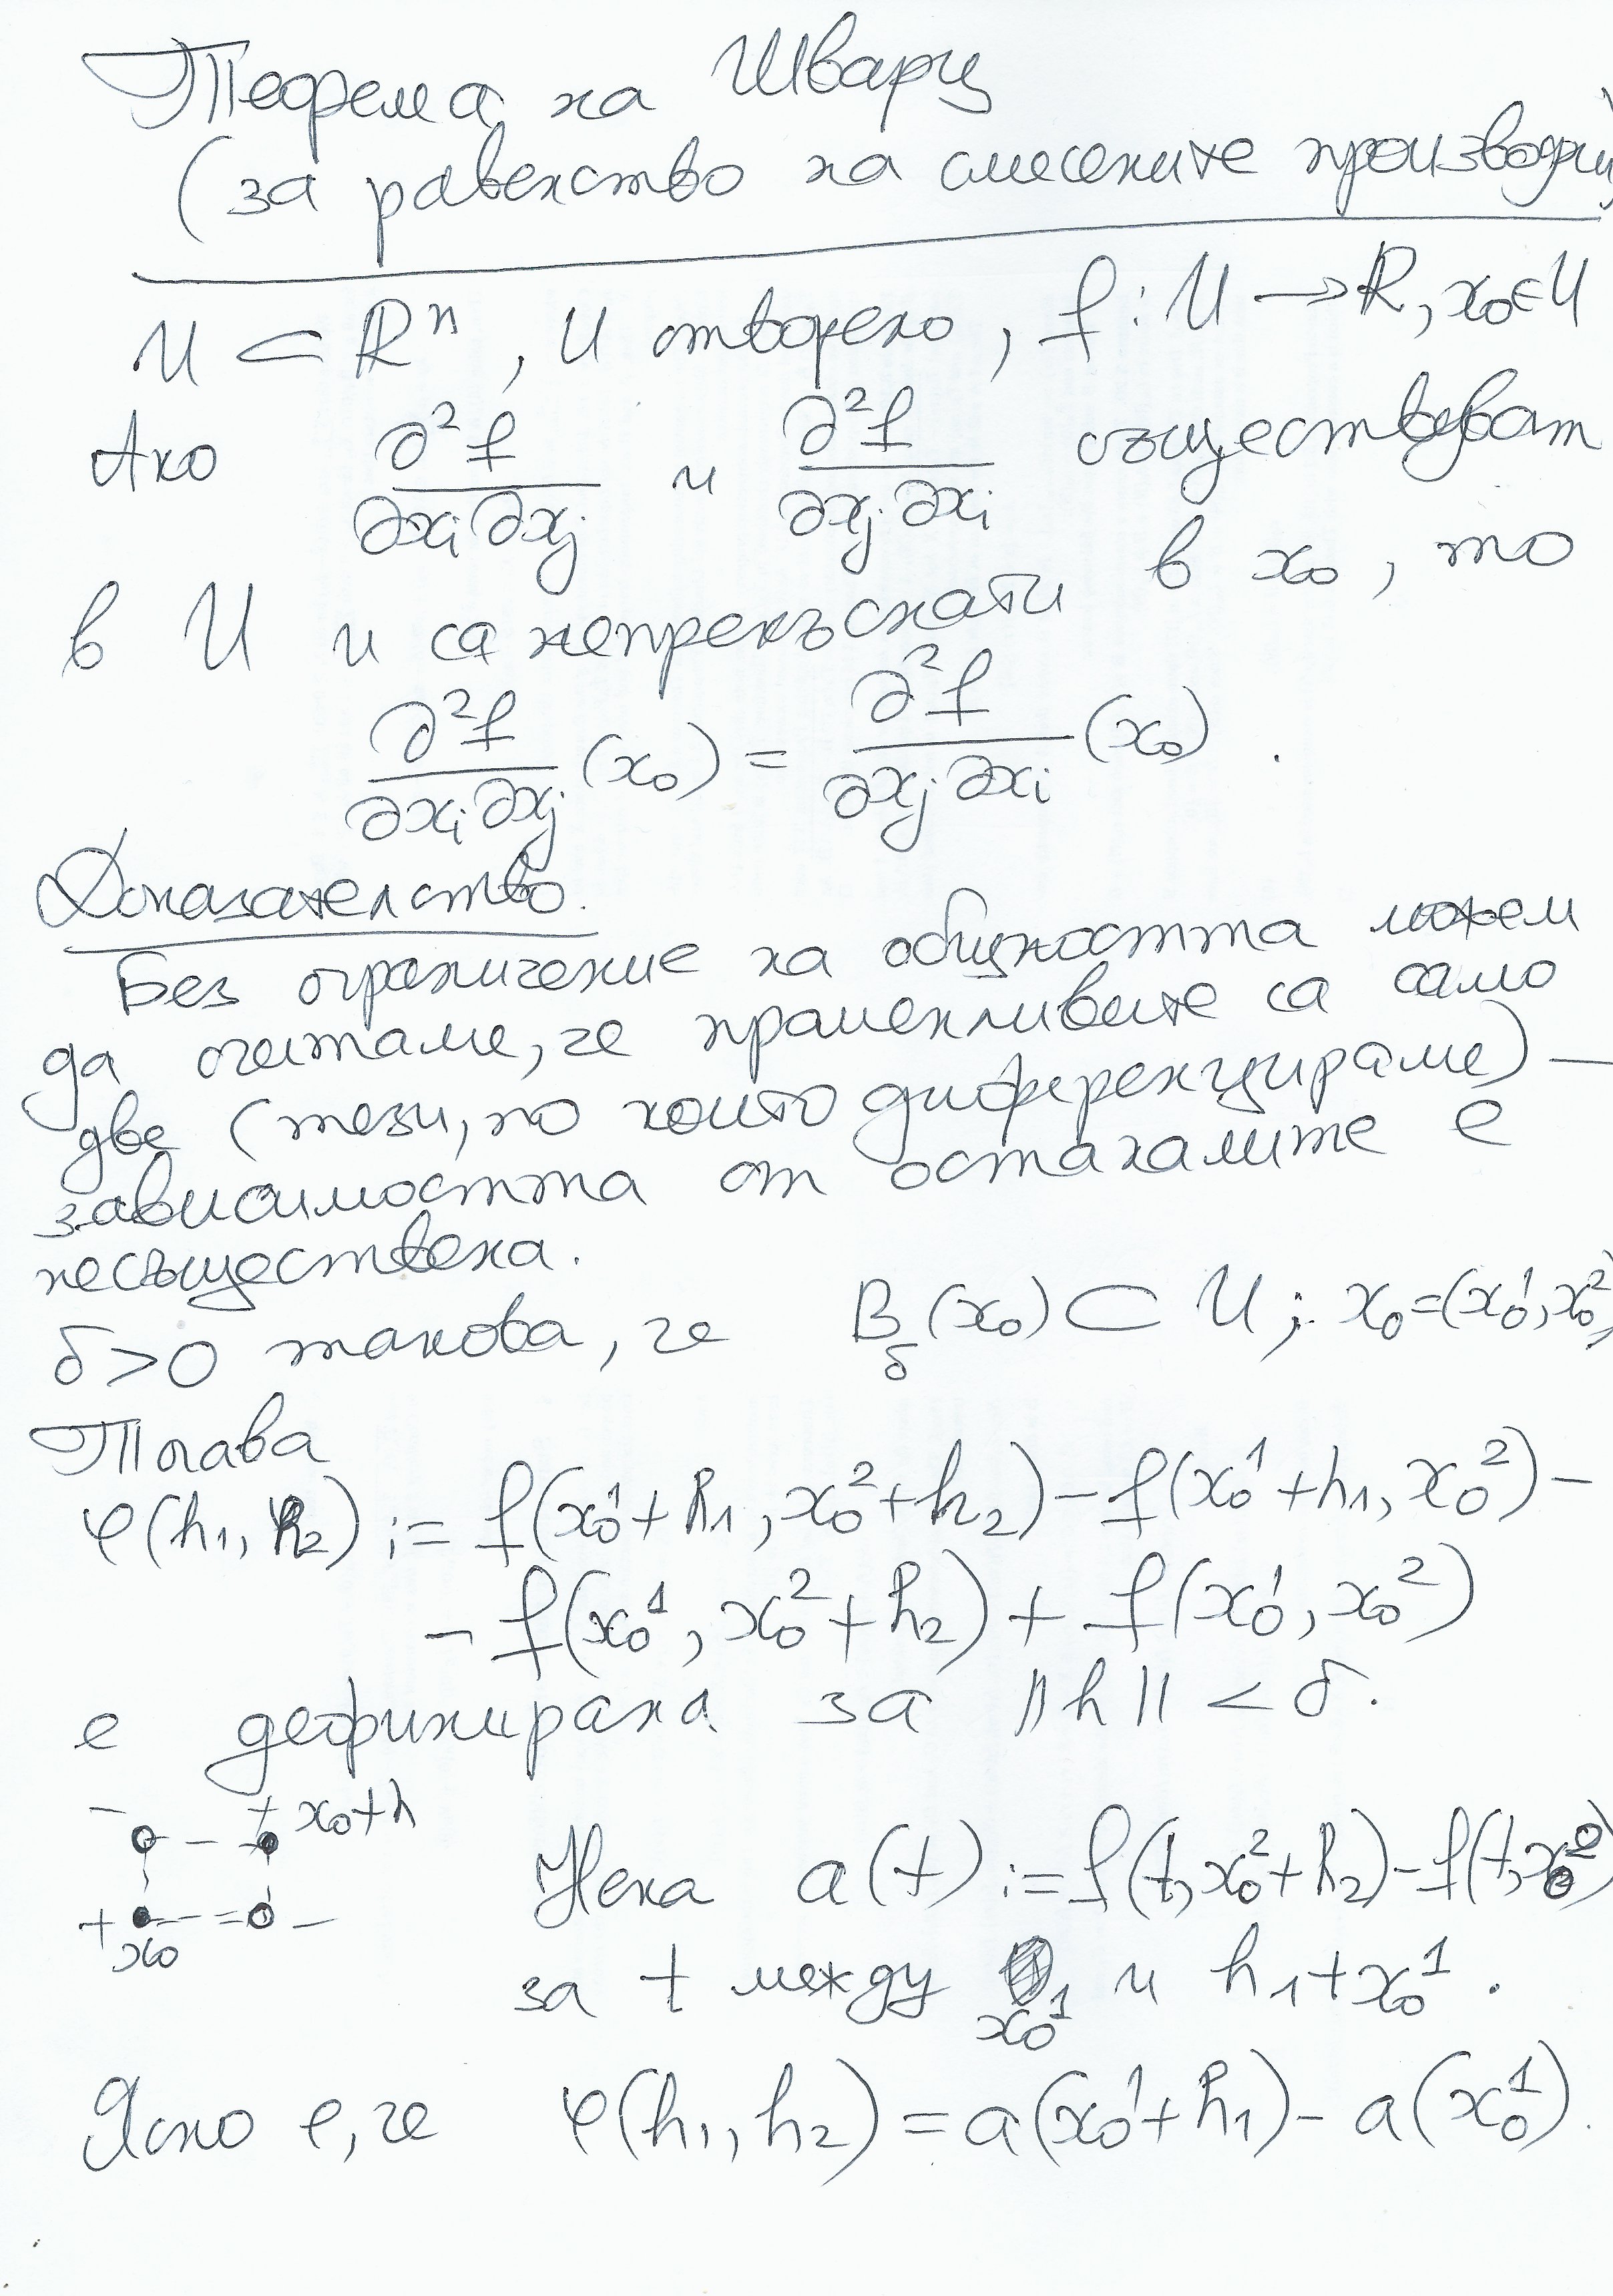 Теорема на Шварц
(за равенство на смесените производни)
U ⊂ ℝⁿ, U отворено, f: U → ℝ, x₀ ∈ U
Ако ∂²f/∂xᵢ∂xⱼ и ∂²f/∂xⱼ∂xᵢ съществуват
в U и са непрекъснати в x₀, то
∂²f/∂xᵢ∂xⱼ (x₀) = ∂²f/∂xⱼ∂xᵢ (x₀) .
Доказателство.
Без ограничение на общността можем
да считаме, че променливите са само
две (тези, по които диференцираме) —
зависимостта от останалите е
несъществена.
δ>0 такова, че B_δ(x₀) ⊂ U; x₀=(x₀¹, x₀²)
Тогава
φ(h₁, h₂) := f(x₀¹+h₁, x₀²+h₂) − f(x₀¹+h₁, x₀²) −
− f(x₀¹, x₀²+h₂) + f(x₀¹, x₀²)
е дефинирана за ‖h‖ < δ.
− + x₀+h
+ x₀ −
Нека a(t) := f(t, x₀²+h₂) − f(t, x₀²)
за t между x₀¹ и h₁+x₀¹.
Ясно е, че φ(h₁, h₂) = a(x₀¹+h₁) − a(x₀¹).